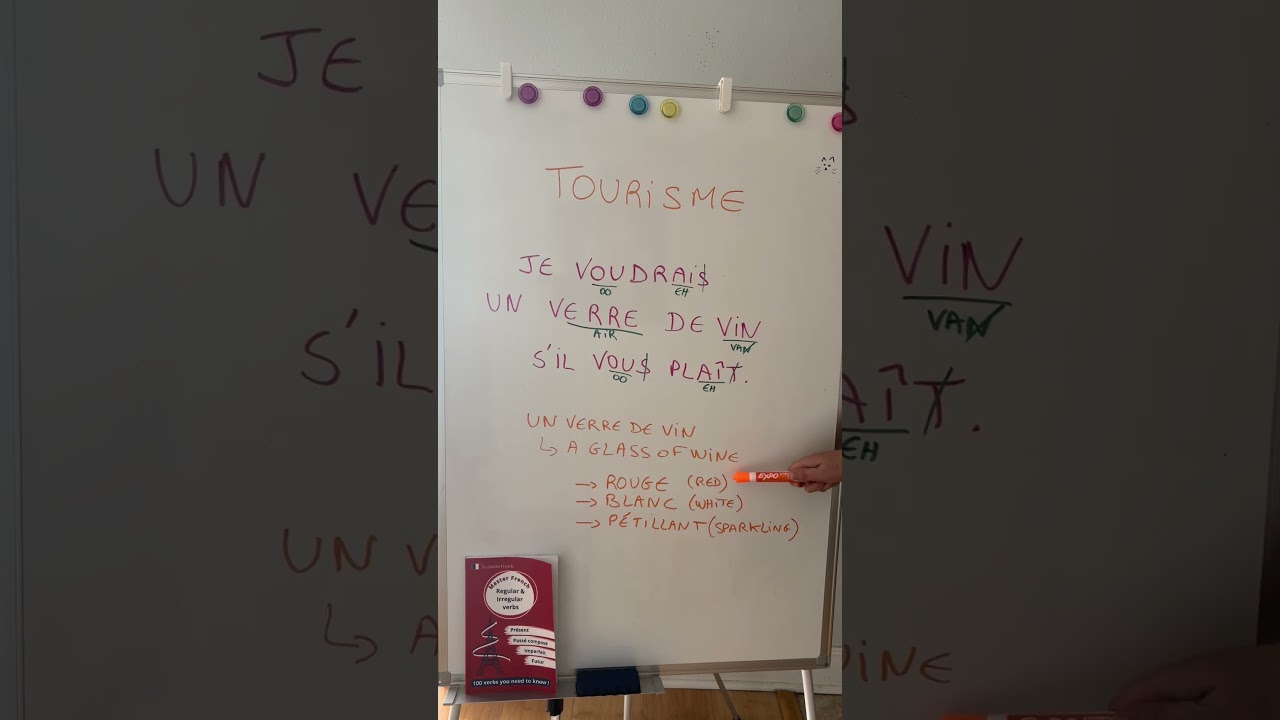 TOURiSME
JE VOUDRAiS
OO EH
UN VERRE DE ViN
AiR VAN
S'iL VOUS PLAÎT.
OO EH
UN VERRE DE ViN
↳ A GLASS OF WiNE
→ ROUGE (RED)
EXPO
→ BLANC (WHiTE)
→ PÉTiLLANT (SPARKLiNG)
Master French
Regular &
Irregular
verbs
Présent
Passé composé
Imparfait
Futur
100 verbs you need to know !